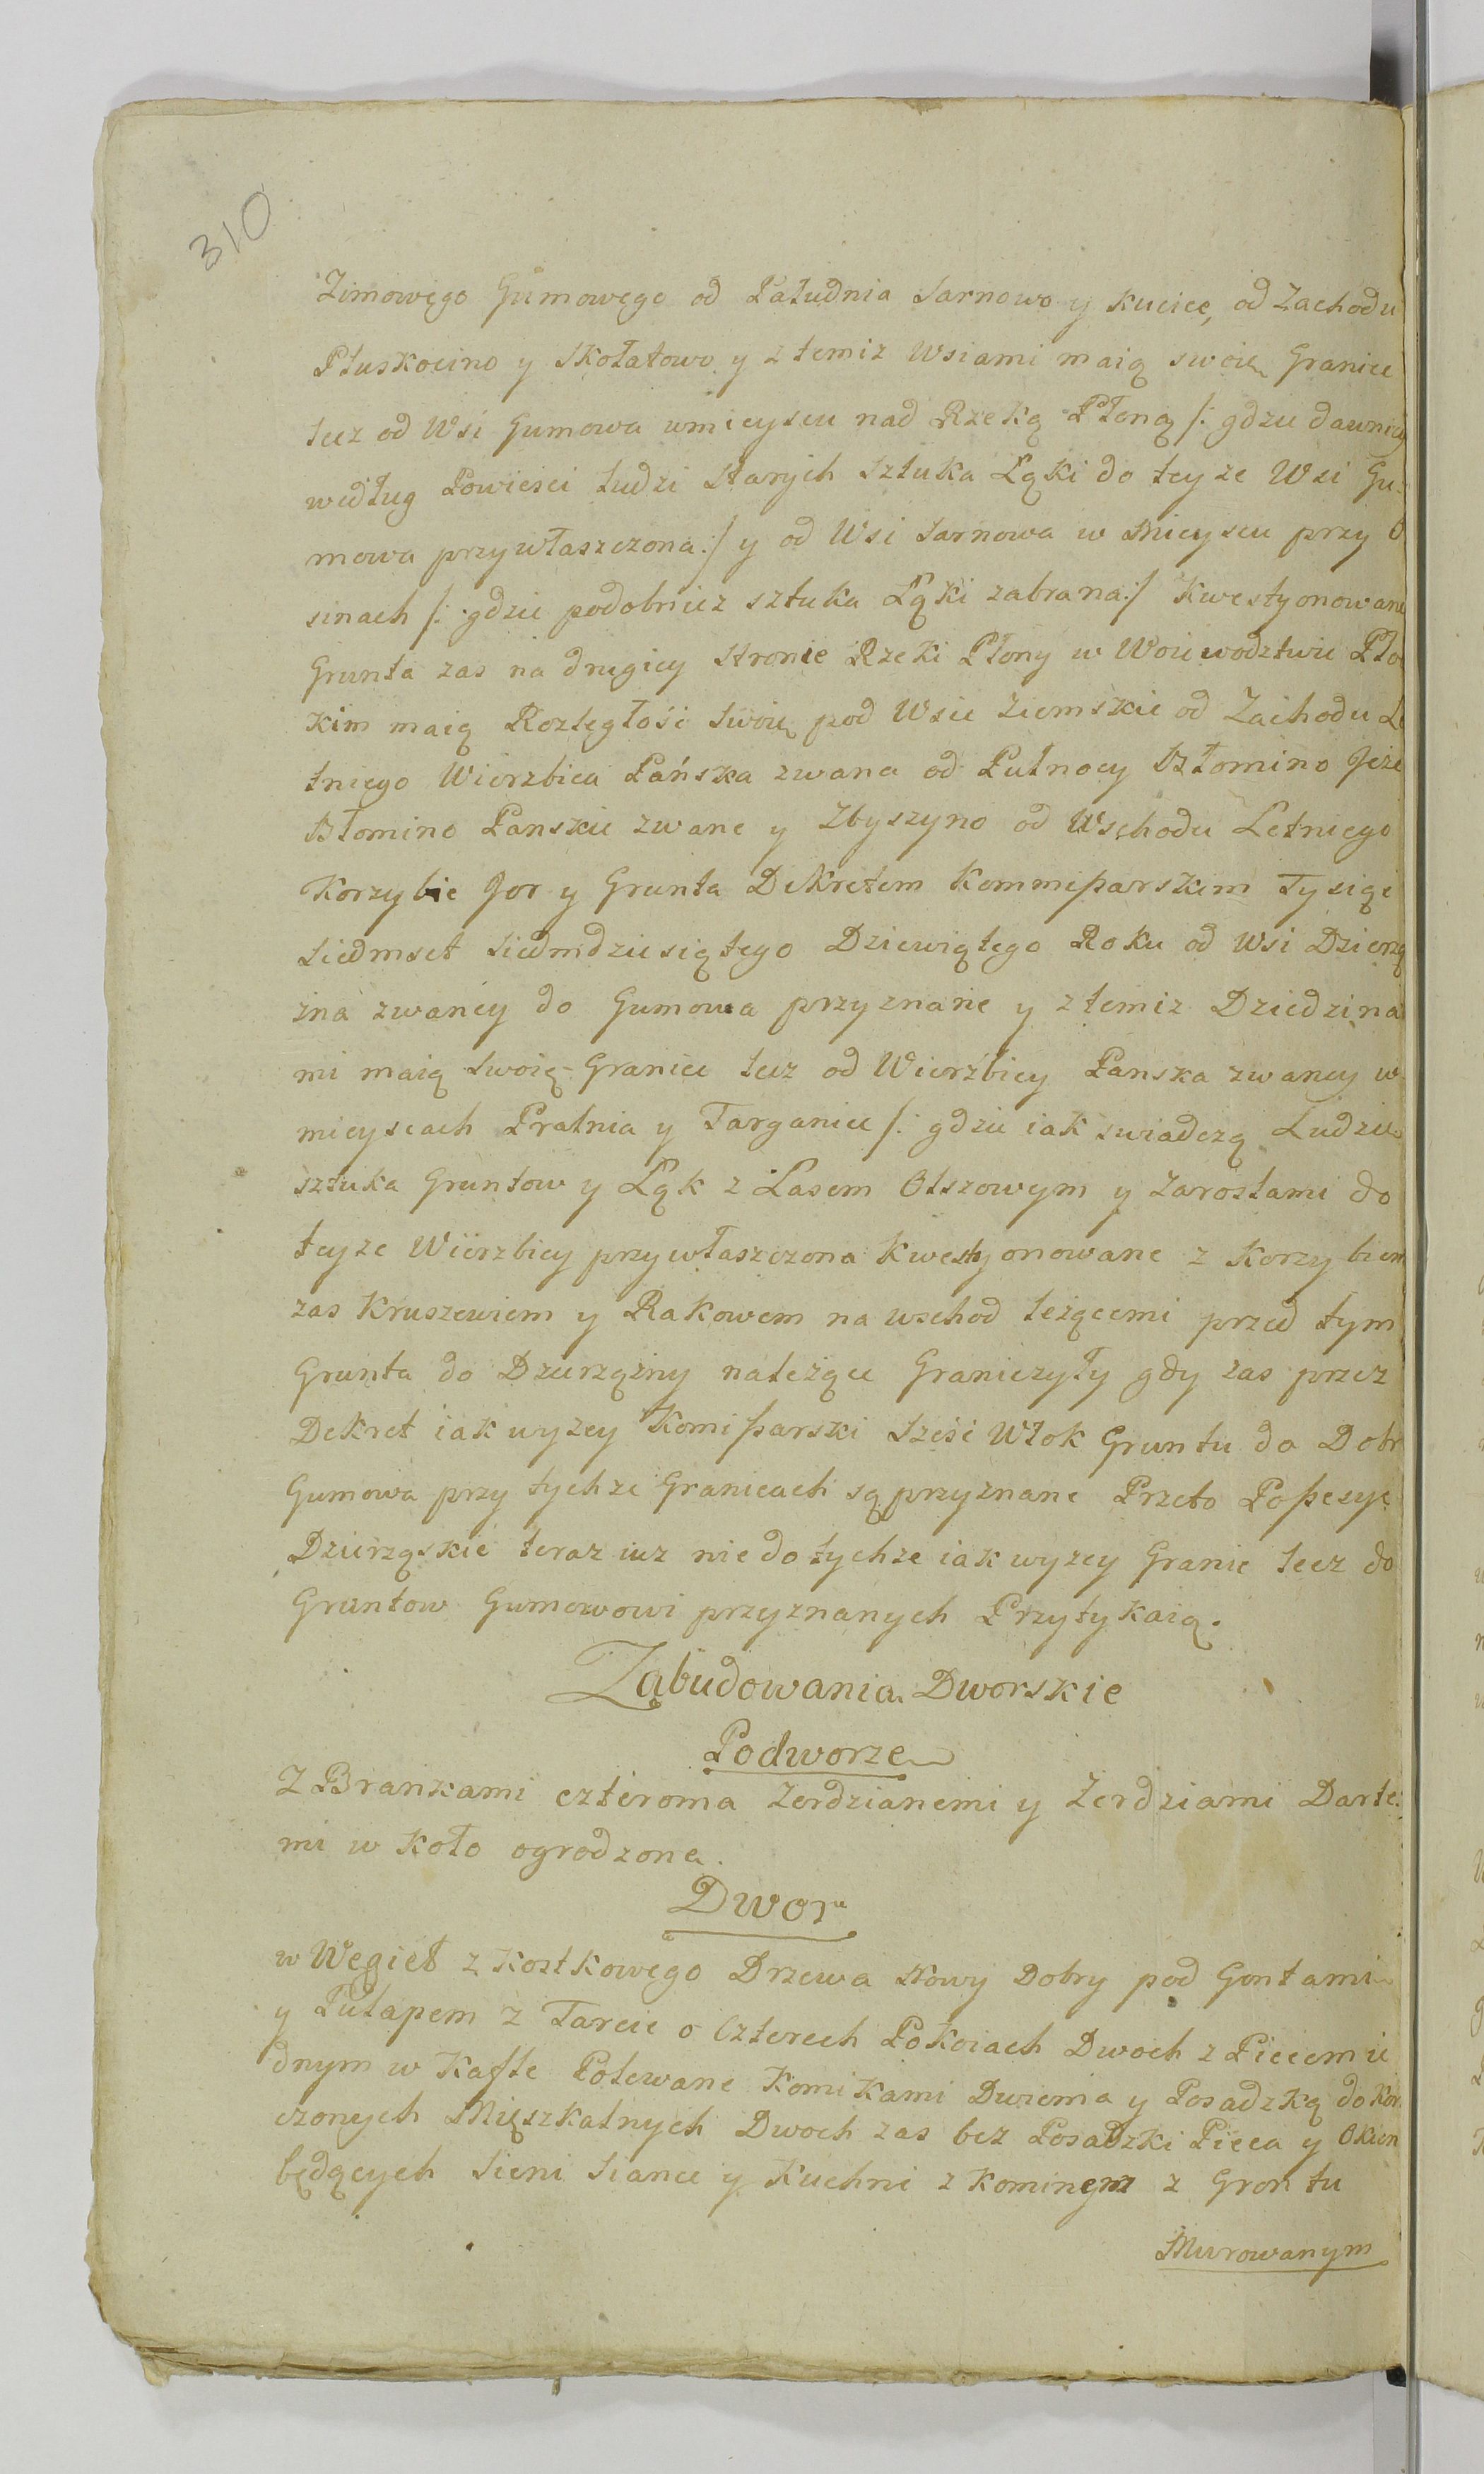 310
Zimowego Gumowego od Południa Sarnowo y Kucice, od Zachodu
Płuskocino y Skołatowo y z temiz Wsiami maią swoię Granice
lecz od Wsi Gumowa wmieyscu nad Rzeką Płoną /: gdzie dawniey
według Powieści ludzi Starych Sztuka Łąki do teyze Wsi Gu:
mowa przywłaszczona :/ y od Wsi Sarnowa w Mieyscu przy O
sinach /: gdzie podobniez sztuka Łąki zabrana :/ Kwestyonowane
Grunta zas na drugiey Stronie Rzeki Płony w Woiewodztwie Pło
kim maią Rozległośc swoię pod Wsie Ziemskie od Zachodu Le
tniego Wierzbica Pańska zwana od Pułnocy Błomino Jeże
Błomino Panskie zwane y Zbyszyno od Wschodu Letniego
Korzybie Gor y Grunta Dekretem Kommissarskim Tysiąc
Siedmset Siedmdziesiątego Dziewiątego Roku od Wsi Dzierzą
zna zwaney do Gumowa przyznane y z temiz Dziedzina
mi maią Swoię Granice lecz od Wierzbicy Panska zwaney w
mieyscach Pratnia y Targanice /: gdzie iak swiadczą Ludzie
sztuka Gruntow y Łąk z Lasem Olszowym y Zaroslami do
teyze Wierzbicy przywłaszczona Kwestyonowane z Korzybiem
zas Kruszewiem y Rakowem na wschod leżącemi przed tym
Grunta do Dzierzązny należące Graniczyły gdy zas przez
Dekret iak wyzey Komissarski Sześć Włok Gruntu do Dobr
Gumowa przy tychze Granicach są przyznane Przeto Possesye
Dzierząskie teraz iuz nie do tychze iak wyzey Granic lecz do
Gruntow Gumowowi przyznanych Przytykaią.
Zabudowania Dworskie
Podworze
Z Bramkami czteroma Zerdzianemi y Zerdziami Darte:
mi w Koło ogrodzone.
Dwor
w Węgieł z Kostkowego Drzewa Nowy Dobry pod Gontami
y Pułapem z Tarcic o Czterech Pokoiach Dwoch z Piecem ie
dnym w Kafle Polewane Komikami Dwiema y Posadzką dokoń
czonych Mięszkalnych Dwoch zas bez Posadzki Pieca y Okien
będących Sieni Siance y Kuchni z Kominem z Grontu
Murowanym